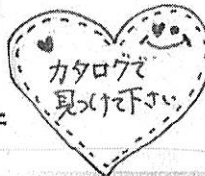 カタログで
見つけて下さい